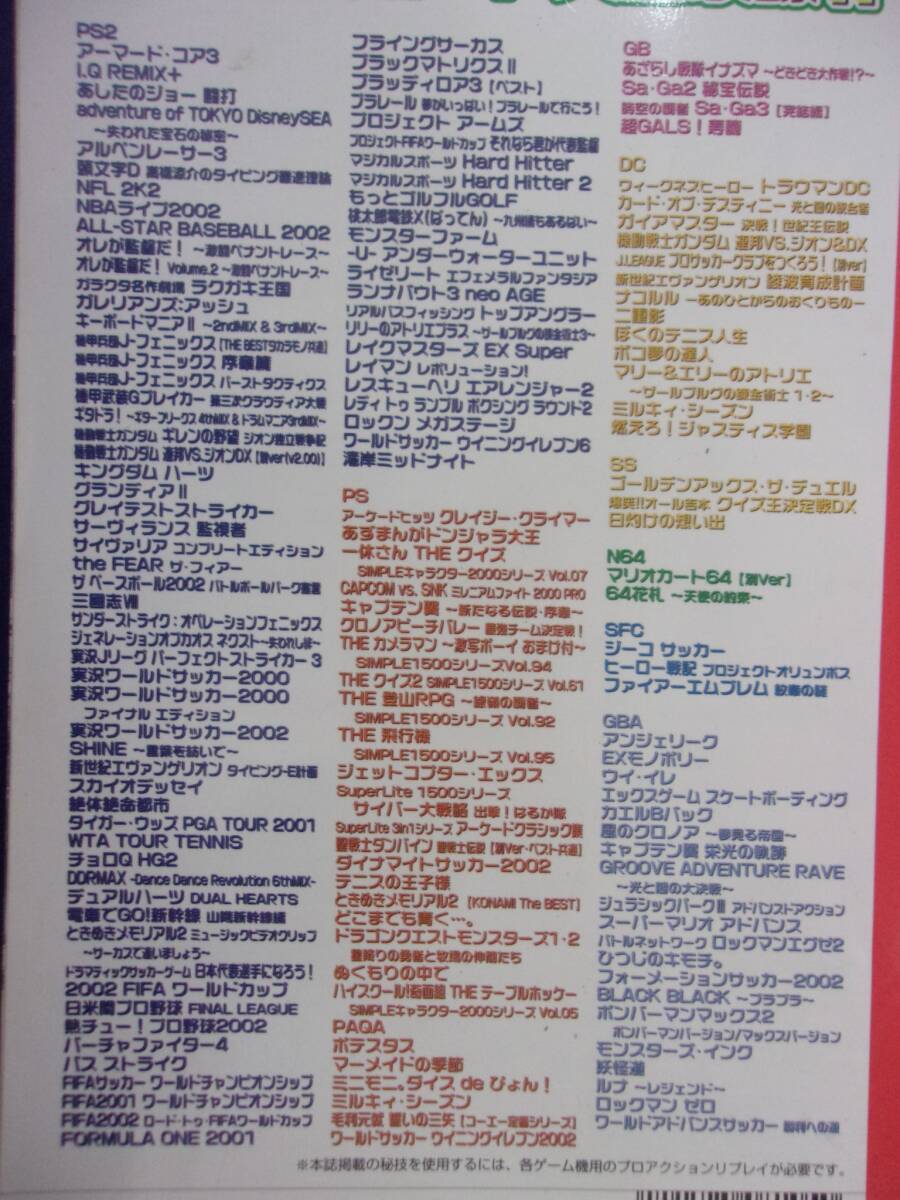 PS2
アーマード・コア3
I.Q REMIX+
あしたのジョー 闘打
adventure of TOKYO DisneySEA
～失われた宝石の秘密～
アルペンレーサー3
頭文字D 高橋涼介のタイピング最速理論
NFL 2K2
NBAライブ2002
ALL-STAR BASEBALL 2002
オレが監督だ! ～激闘ペナントレース～
オレが監督だ! Volume.2 ～激闘ペナントレース～
ガラクタ名作劇場 ラクガキ王国
ガレリアンズ:アッシュ
キーボードマニアⅡ ～2ndMIX & 3rdMIX～
機甲兵団J-フェニックス [THE BESTタカラモノ共通]
機甲兵団J-フェニックス 序章篇
機甲兵団J-フェニックス バーストタクティクス
機甲武装Gブレイカー 第三次クラウディア大戦
ギタドラ! ～ギターフリークス 4thMIX & ドラムマニア3rdMIX～
機動戦士ガンダム ギレンの野望 ジオン独立戦争記
機動戦士ガンダム 連邦VS.ジオンDX [別ver(v2.00)]
キングダム ハーツ
グランディアⅡ
グレイテストストライカー
サーヴィランス 監視者
サイヴァリア コンプリートエディション
the FEAR ザ・フィアー
ザ ベースボール2002 バトルボールパーク宣言
三國志Ⅷ
サンダーストライク:オペレーションフェニックス
ジェネレーションオブカオス ネクスト～失われし絆～
実況Jリーグ パーフェクトストライカー 3
実況ワールドサッカー2000
実況ワールドサッカー2000
ファイナル エディション
実況ワールドサッカー2002
SHINE ～言葉を紡いで～
新世紀エヴァンゲリオン タイピング-E計画
スカイオデッセイ
絶体絶命都市
タイガー・ウッズ PGA TOUR 2001
WTA TOUR TENNIS
チョロQ HG2
DDRMAX -Dance Dance Revolution 6thMIX-
デュアルハーツ DUAL HEARTS
電車でGO!新幹線 山陽新幹線編
ときめきメモリアル2 ミュージックビデオクリップ
～サーカスで逢いましょう～
ドラマティックサッカーゲーム 日本代表選手になろう!
2002 FIFA ワールドカップ
日米間プロ野球 FINAL LEAGUE
熱チュー! プロ野球2002
バーチャファイター4
バス ストライク
FIFAサッカー ワールドチャンピオンシップ
FIFA2001 ワールドチャンピオンシップ
FIFA2002 ロード・トゥ・FIFAワールドカップ
FORMULA ONE 2001
フライングサーカス
ブラックマトリクスⅡ
ブラッディロア3 [ベスト]
プラレール 夢がいっぱい! プラレールで行こう!
プロジェクト アームズ
プロジェクトFIFAワールドカップ それなら君が代表監督
マジカルスポーツ Hard Hitter
マジカルスポーツ Hard Hitter 2
もっとゴルフルGOLF
桃太郎電鉄X(ばってん) ～九州編もあるばい～
モンスターファーム
-U- アンダーウォーターユニット
ライゼリート エフェメラルファンタジア
ランナバウト3 neo AGE
リアルバスフィッシング トップアングラー
リリーのアトリエプラス ～ザールブルグの錬金術士3～
レイクマスターズ EX Super
レイマン レボリューション!
レスキューヘリ エアレンジャー2
レディ トゥ ランブル ボクシング ラウンド2
ロックン メガステージ
ワールドサッカー ウイニングイレブン6
湾岸ミッドナイト
PS
アーケードヒッツ クレイジー・クライマー
あずまんがドンジャラ大王
一休さん THE クイズ
SIMPLEキャラクター2000シリーズ Vol.07
CAPCOM vs. SNK ミレニアムファイト 2000 PRO
キャプテン翼 ～新たなる伝説・序章～
クロノアビーチバレー 最強チーム決定戦!
THE カメラマン ～激写ボーイ おまけ付～
SIMPLE1500シリーズVol.94
THE クイズ2 SIMPLE1500シリーズ Vol.61
THE 登山RPG ～銀嶺の覇者～
SIMPLE1500シリーズ Vol.92
THE 飛行機
SIMPLE1500シリーズ Vol.95
ジェットコプター・エックス
SuperLite 1500シリーズ
サイバー大戦略 出撃! はるか隊
SuperLite 3in1シリーズ アーケードクラシック
聖戦士ダンバイン 聖戦士伝説 [別Ver・ベスト共通]
ダイナマイトサッカー2002
テニスの王子様
ときめきメモリアル2 [KONAMI The BEST]
どこまでも青く…。
ドラゴンクエストモンスターズ1・2
星降りの勇者と牧場の仲間たち
ぬくもりの中で
ハイスクール!奇面組 THE テーブルホッケー
SIMPLEキャラクター2000シリーズ Vol.05
PAQA
ポテスタス
マーメイドの季節
ミニモニ。ダイス de ぴょん!
ミルキィ・シーズン
毛利元就 誓いの三矢 [コーエー定番シリーズ]
ワールドサッカー ウイニングイレブン2002
GB
あざらし戦隊イナズマ ～どきどき大作戦!?～
Sa・Ga2 秘宝伝説
時空の覇者 Sa・Ga3 [完結編]
超GALS! 寿蘭
DC
ウィークネスヒーロー トラウマンDC
カード・オブ・デスティニー 光と闇の統合者
ガイアマスター 決戦! 世紀王伝説
機動戦士ガンダム 連邦VS.ジオン&DX
J.LEAGUE プロサッカークラブをつくろう! [別ver]
新世紀エヴァンゲリオン 綾波育成計画
ナコルル ーあのひとからのおくりものー
二重影
ぼくのテニス人生
ポコ夢の達人
マリー&エリーのアトリエ
～ザールブルグの錬金術士 1・2～
ミルキィ・シーズン
燃えろ! ジャスティス学園
SS
ゴールデンアックス・ザ・デュエル
爆笑!!オール吉本 クイズ王決定戦DX
日灼けの想い出
N64
マリオカート64 [別Ver]
64花札 ～天使の約束～
SFC
ジーコ サッカー
ヒーロー戦記 プロジェクトオリュンポス
ファイアーエムブレム 紋章の謎
GBA
アンジェリーク
EXモノポリー
ウイ・イレ
エックスゲーム スケートボーディング
カエルBバック
風のクロノア ～夢見る帝国～
キャプテン翼 栄光の軌跡
GROOVE ADVENTURE RAVE
～光と闇の大決戦～
ジュラシックパークⅢ アドバンストアクション
スーパーマリオ アドバンス
バトルネットワーク ロックマンエグゼ2
ひつじのキモチ。
フォーメーションサッカー2002
BLACK BLACK ～ブラブラ～
ボンバーマンマックス2
ボンバーマンバージョン/マックスバージョン
モンスターズ・インク
妖怪道
ルナ ～レジェンド～
ロックマン ゼロ
ワールドアドバンスサッカー 勝利への道
※本誌掲載の秘技を使用するには、各ゲーム機用のプロアクションリプレイが必要です。